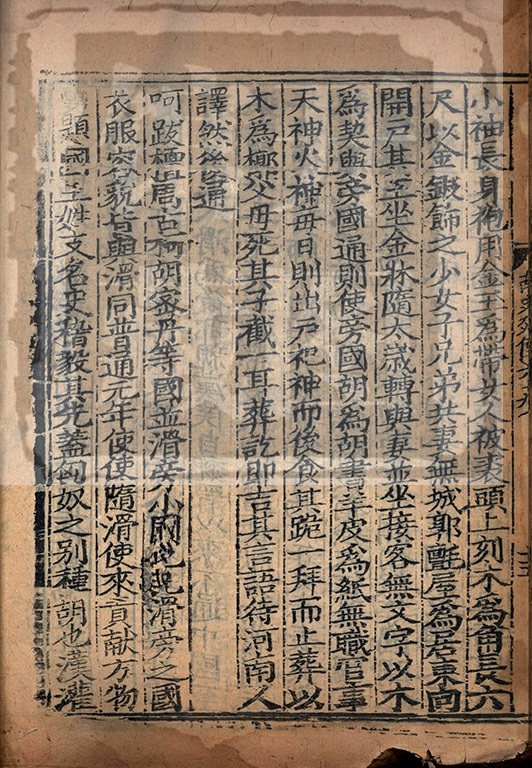 小袖長身袍用金玉為帶女人被裘頭上刻木為角長六
尺以金銀飾之少女子兄弟共妻無城郭氈屋為居東向
開戸其王坐金牀隨太歲轉與妻並坐接客無文字以木
為契與旁國通則使旁國胡為胡書羊皮為紙無職官事
天神火神毎日則出戸祀神而後食其跪一拜而止葬以
木為槨父母死其子截一耳葬訖即吉其言語待河南人
譯然後通
呵跋檀周古柯胡密丹等國並滑旁小國也凡滑旁之國
衣服容貌皆與滑同普通元年使使隨滑使來貢献方物
題國王姓支名史稽毅其先蓋匈奴之別種胡也漢灌